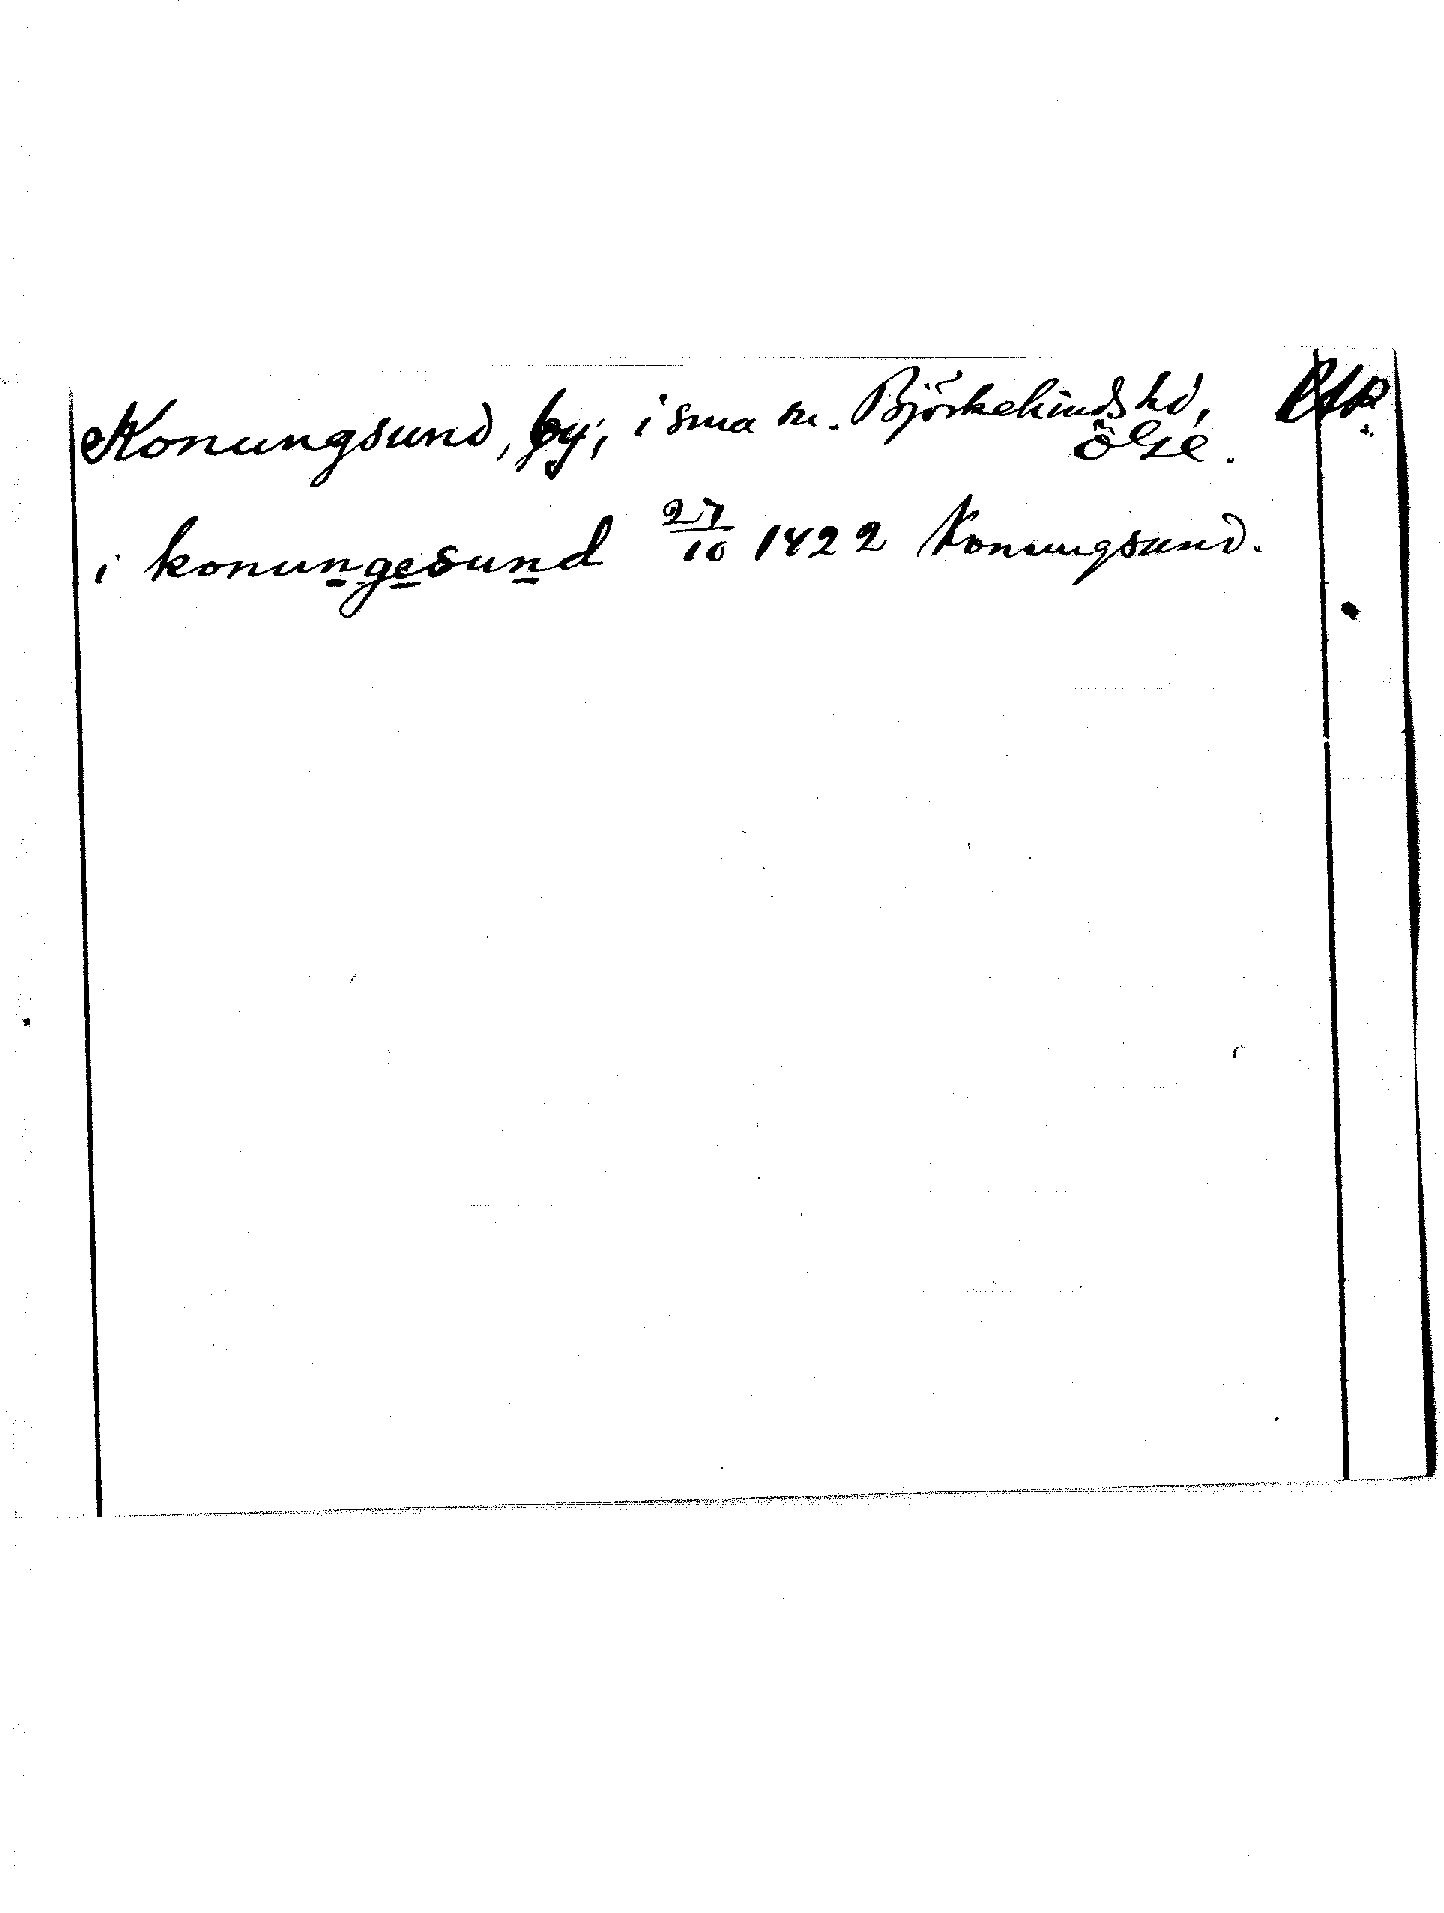 Konungsund, by, i sma sn. Björkekinds hd, 
ölse.
i konungesund 27/10 1422 Konungsund.